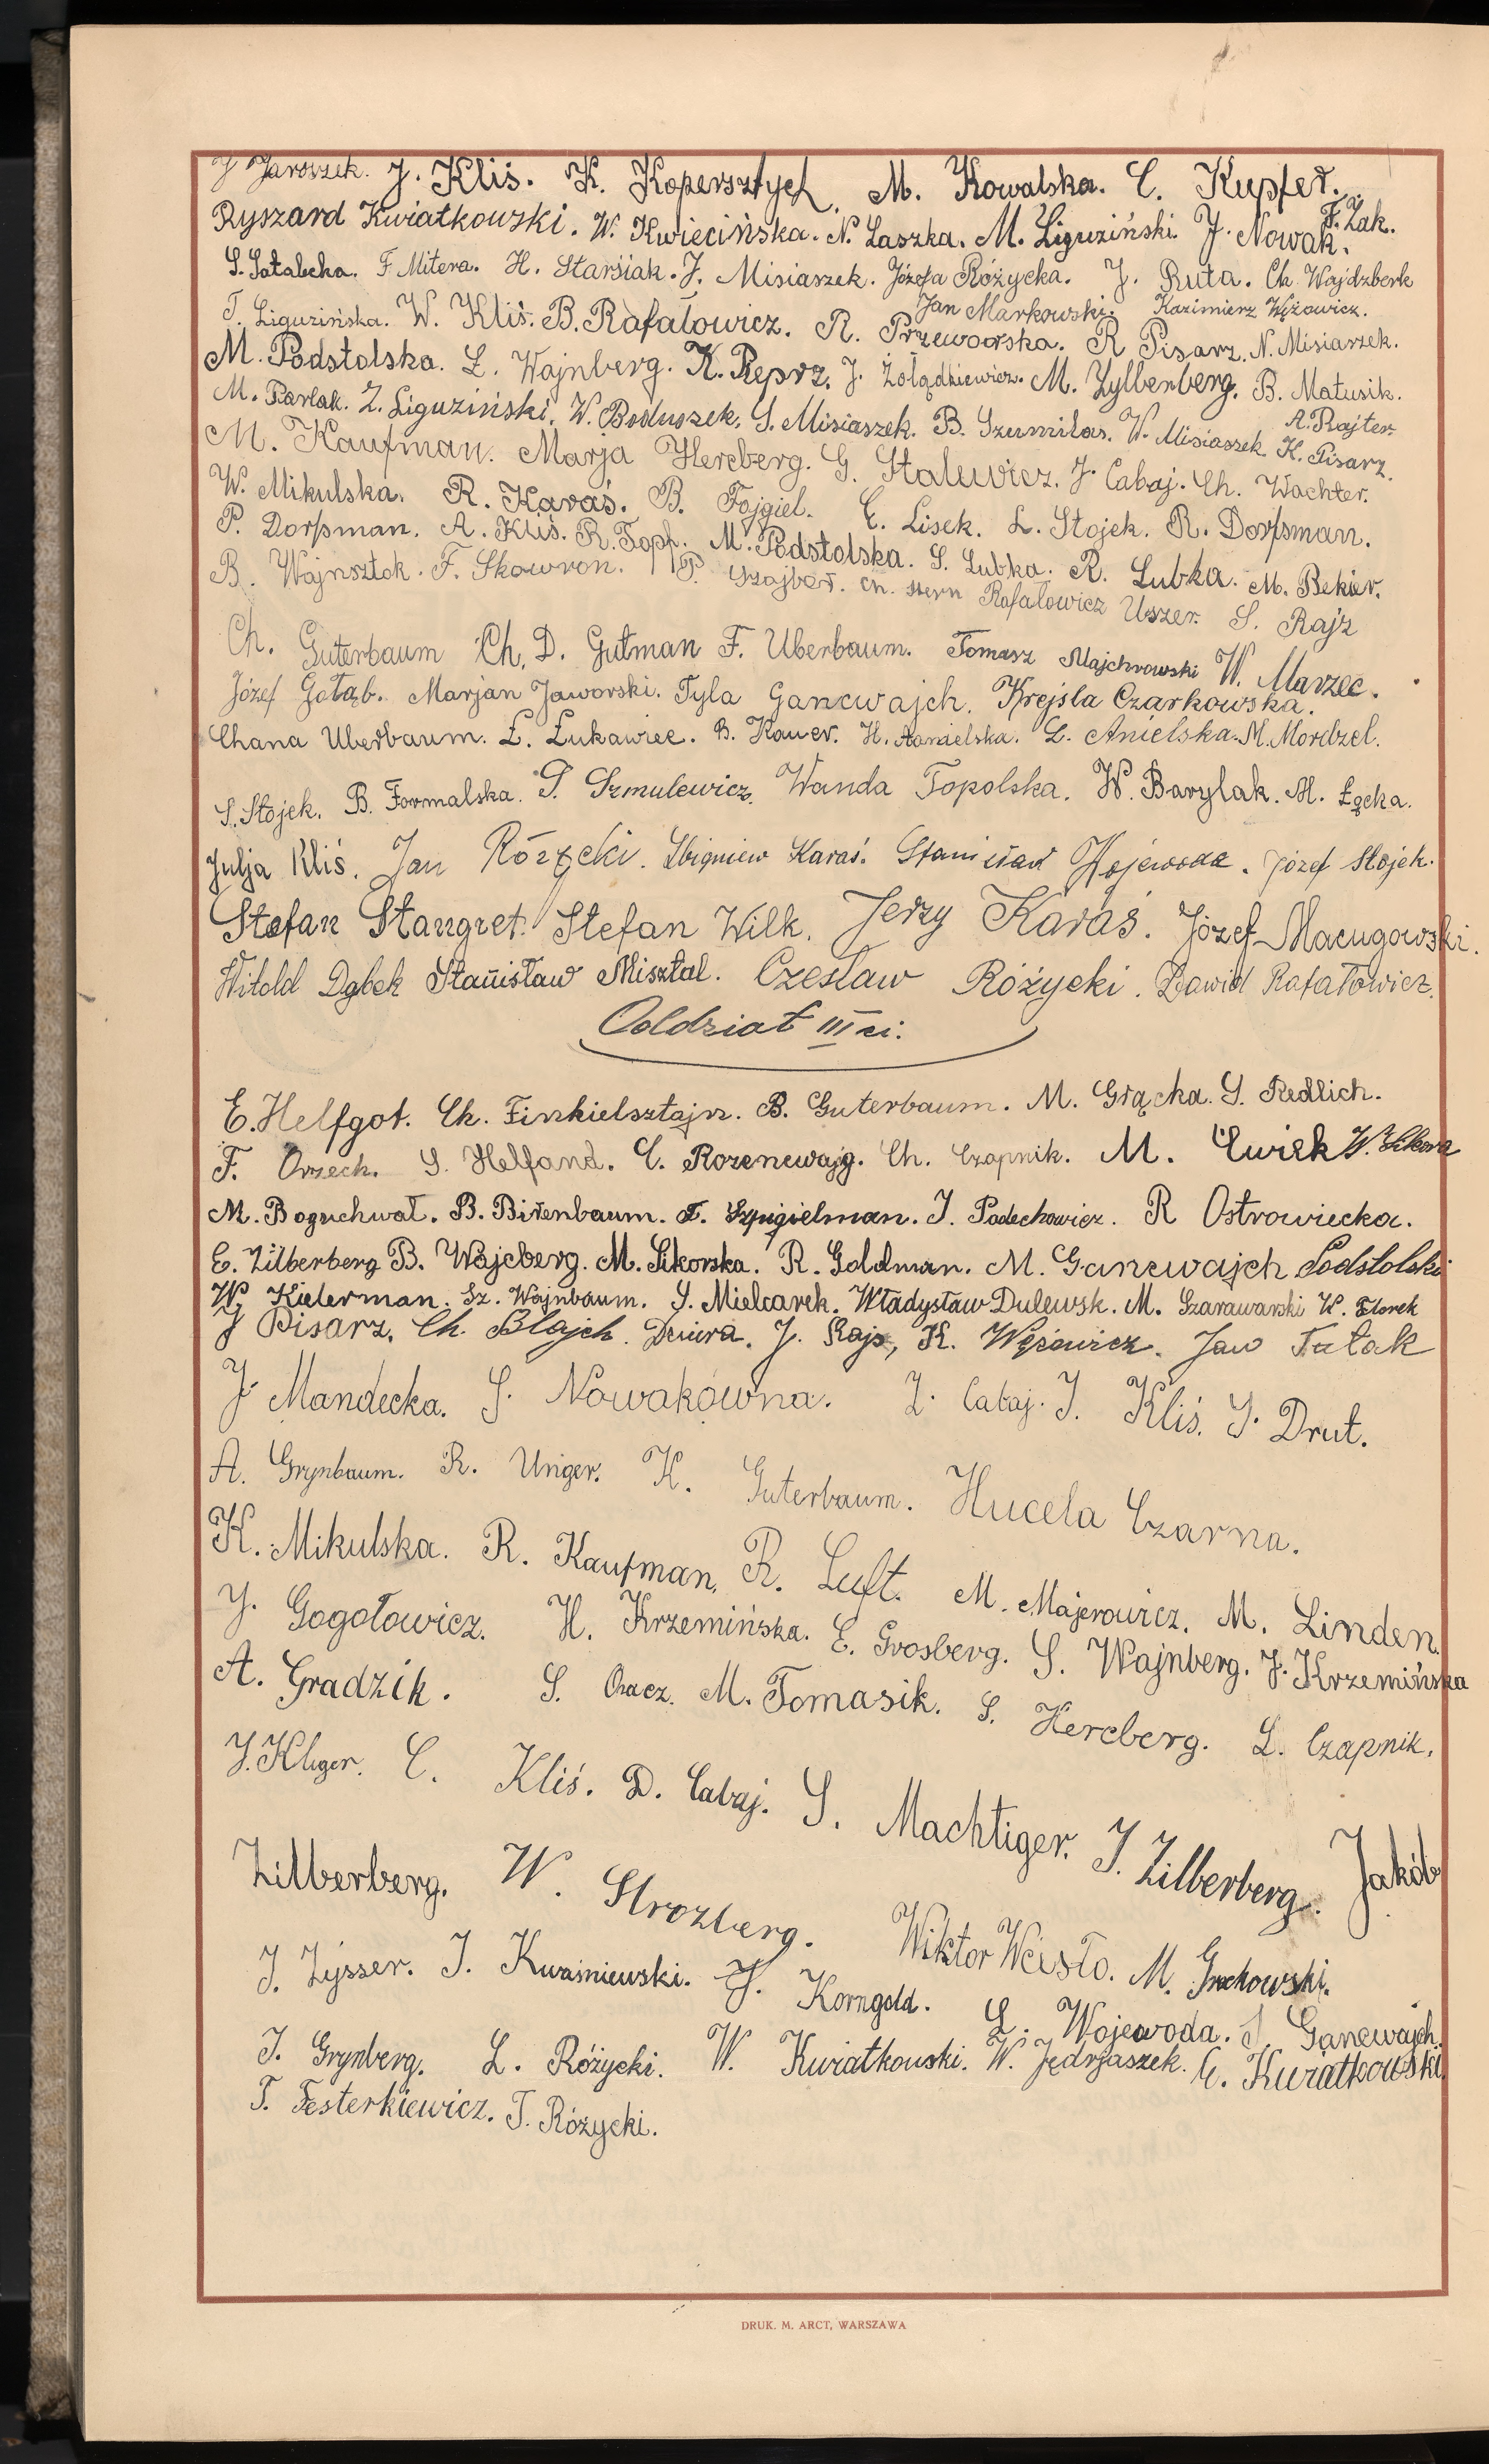 J Jaroszek. J. Kliś. K. Kopersztych. M. Kowalska. C. Kupfer.
F. Żak.
Ryszard Kwiatkowski. W. Kwiecińska. N. Laszka. M. Liguziński. J. Nowak.
S. Sałabcka. F Mitera. H. Starsiak. J. Misiaszek. Józefa Różycka. J. Ruta. Ch. Wajdzberk
Jan Markowski. Kazimierz Wężowicz.
T. Liguzińska. W. Kliś. B. Rafałowicz. R. Przeworska. R Pisarz. N. Misiaszek.
M. Podstolska. L. Wajnberg. K. Reprz. J. Żołądkiewicz. M. Zylberberg. B. Matusik.
A. Rajter.
M. Pawlak. Z. Liguziński. W. Boduszek. S. Misiaszek. B. Szumilas. W. Misiaszek. K. Pisarz.
M. Kaufman. Marja Hercberg. G. Stalewicz. J. Cabaj. Ch. Wachter.
W. Mikulska. R. Karaś. B. Fojgiel. C. Lisek. L. Stojek. R. Dorfsman.
P. Dorfsman. A. Kliś. R. Topf. M. Podstolska. S. Lubka. R. Lubka. M. Bekier.
B. Wajnsztok. F. Skowron. P. Szajber. Ch. Stern Rafałowicz Uszer. S. Rajz
Ch. Guterbaum Ch. D. Gutman F. Uberbaum. Tomasz Majchrowski W. Marzec.
Józef Gołąb. Marjan Jaworski. Tyla Gancwajch. Krejsla Czarkowska.
Chana Uberbaum. L. Łukawiec. B. Kauer. H. L. Anielska. M. Mordzel.
S. Stojek. B. Formalska. P. Szmulewicz. Wanda Topolska. W. Barylak. M. Łącka.
Julja Kliś. Jan Różycki. Zbigniew Karaś. Stanisław Wojewoda. Józef Stojek.
Stefan Stangret. Stefan Wilk. Jerzy Karaś. Józef Macugowski.
Witold Dąbek Stanisław Misztal. Czesław Różycki. Dawid Rafałowicz.
Oddział III ci.
E. Helfgot. Ch. Finkielsztajn. B. Guterbaum. M. Grącka. S. Redlich.
F. Orzech. S. Helfand. C. Rozencwajg. Ch. Czapnik. M. Ćwiek W. Sikora
M. Boguchwał. B. Birenbaum. F. Szpigielman. J. Podechowicz. R Ostrowiecka.
E. Zilberberg B. Wajcberg. M. Sikorska. R. Goldman. M. Gancwajch Podstolski
W. Kielerman. Sz. Wajnbaum. S. Mielcarek. Władysław Dulewsk. M. Szarawarski W. Florek
J Pisarz. Ch. Blajch. Dziura. J. Rajs, K. Wężowicz. Jan Fatak
J. Mandecka. S. Nowakówna. Z. Cabaj. J. Kliś. J. Drut.
A. Grynbaum. R. Unger. K. Guterbaum. Hucela Czarna.
K. Mikulska. R. Kaufman. R. Luft. M. Majerowicz. M. Linden.
J. Gogołowicz. H. Krzemińska. E. Grosberg. S. Wajnberg. J. Krzemińska
A. Gradzik. S. Oracz. M. Tomasik. S. Hercberg. L. Czapnik.
J. Kliger. C. Kliś. D. Cabaj. S. Machtiger. J. Zilberberg. Jakób
Zilberberg. W. Strozberg. Wiktor Weisło. M. Grochowski.
J. Zysser. J. Kwaśniewski. J. Korngold. L. Wojewoda. J. Gancwajch.
J. Grynberg. L. Różycki. W. Kwiatkowski. W. Jędrjaszek. C. Kwiatkowski.
T. Festerkiewicz. T. Różycki.
DRUK. M. ARCT, WARSZAWA